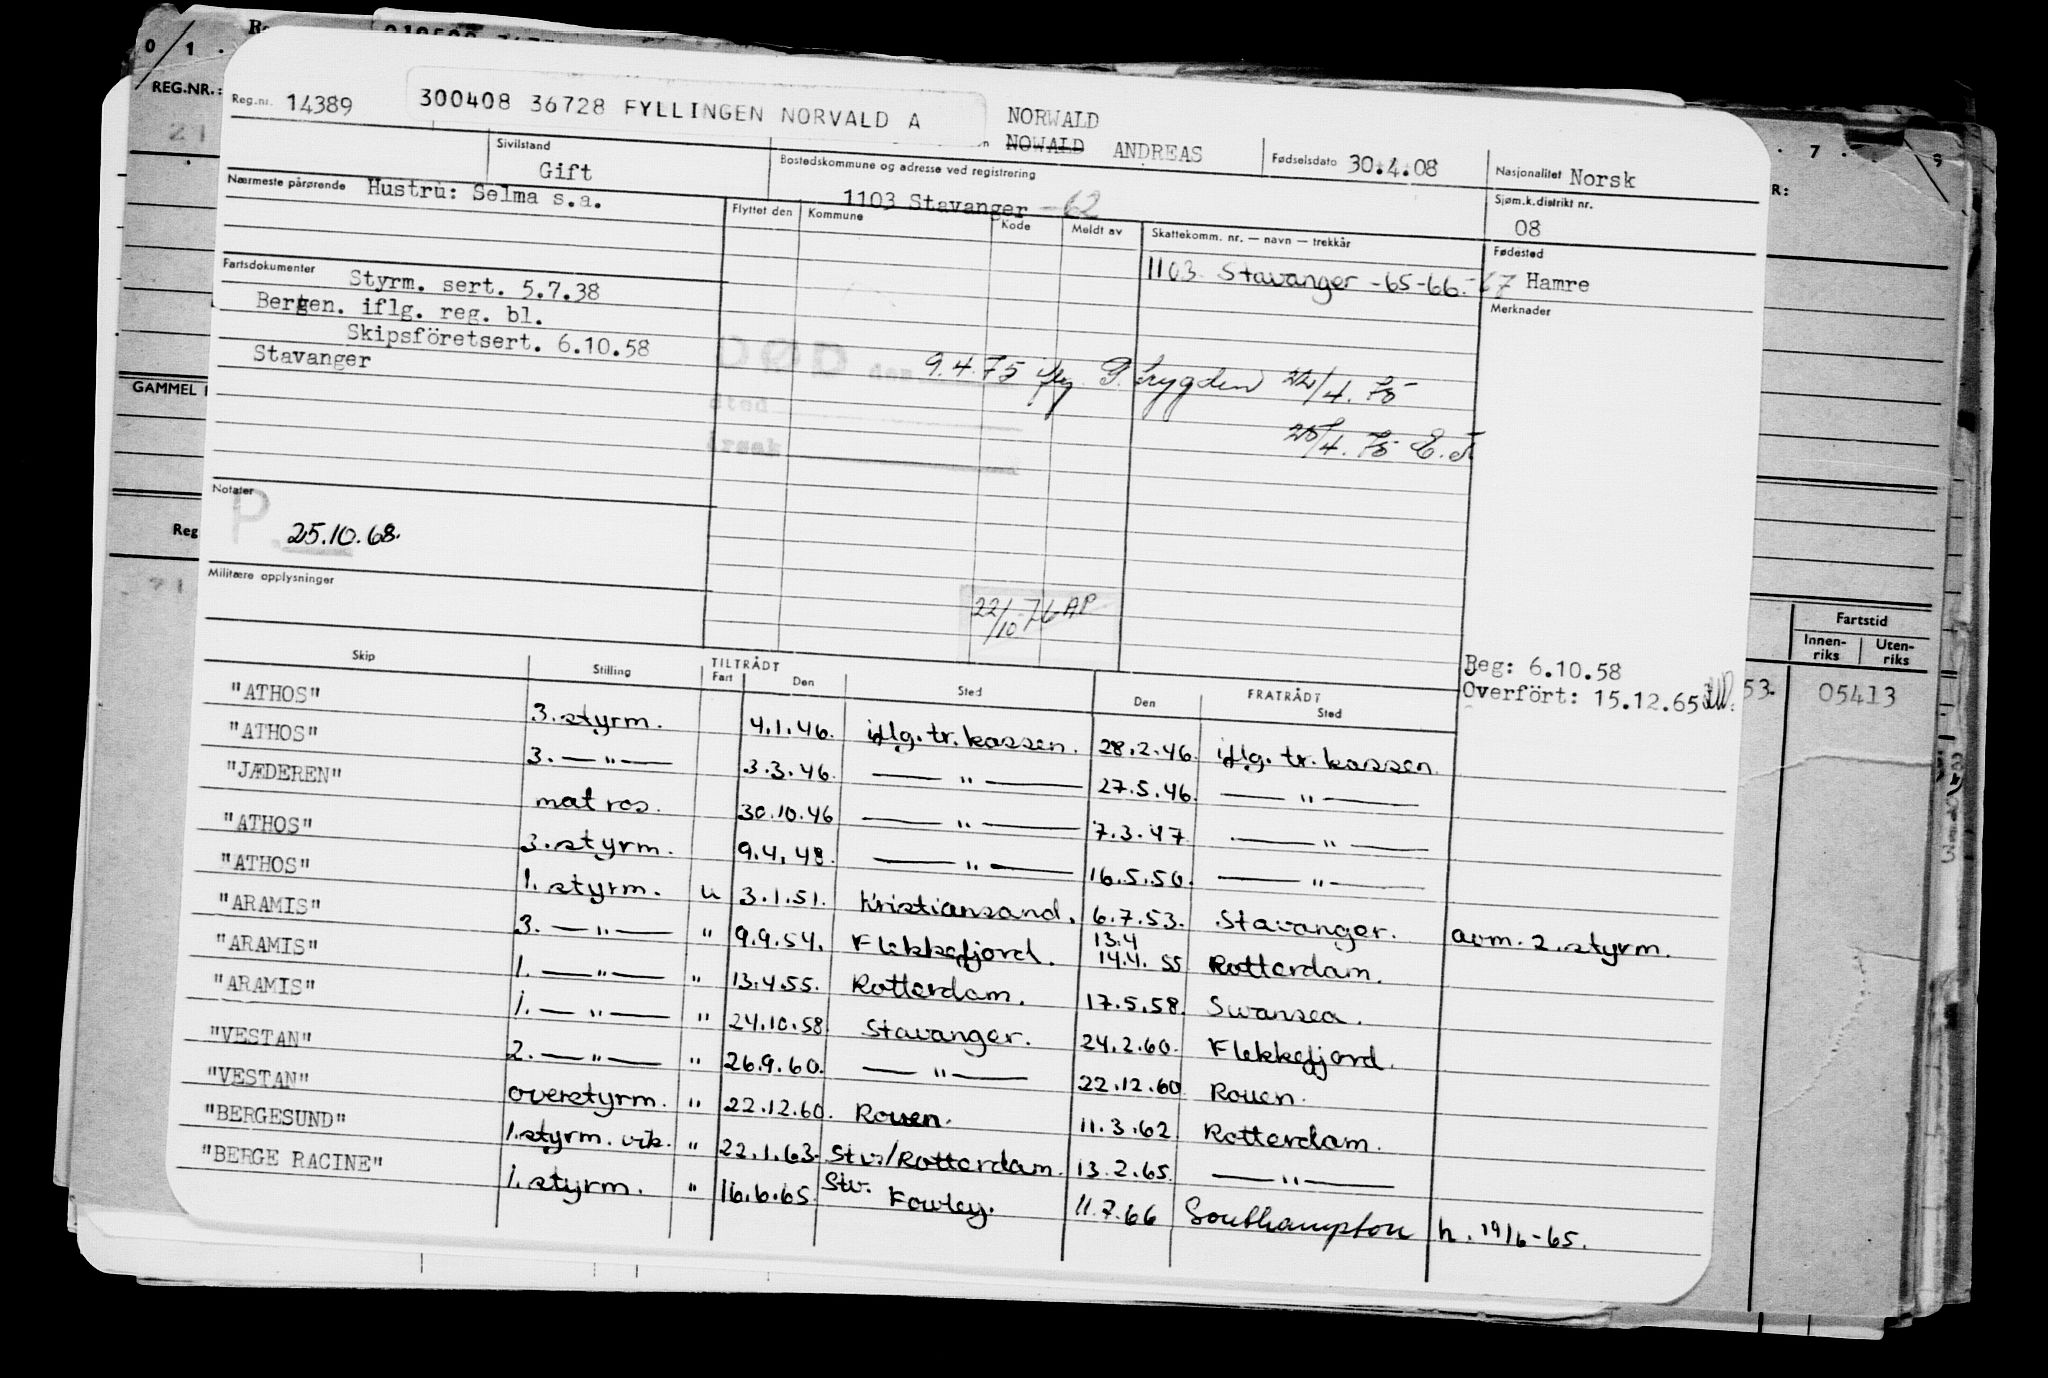 REG.NR.:
Reg.nr. 14389
300408 36728 FYLLINGEN NORVALD A
NORWALD
NOWALD ANDREAS
Fødselsdato 30.4.08
Nasjonalitet Norsk
Sivilstand
Gift
Bostedskommune og adresse ved registrering
1103 Stavanger -62
Sjøm.k.distrikt nr.
08
Nærmeste pårørende Hustru: Selma s.a.
Flyttet den Kommune Kode Meldt av
Skattekomm. nr. — navn — trekkår
1103. Stavanger -65-66.-67
Fødested
Hamre
Fartsdokumenter
Styrm. sert. 5.7.38
Bergen. iflg. reg. bl.
Skipsföretsert. 6.10.58
Stavanger
Merknader
DØD den 9.4.75 iflg. P. trygden 22/4.75
sted
årsak
25/4.75
GAMMEL
Notater
P. 25.10.68.
Reg
Militære opplysninger
22/10 76 AP
Fartstid
Innen-riks Uten-riks
Beg: 6.10.58
Overfört: 15.12.65
53. 05413
Skip Stilling TILTRÅDT Fart Den Sted FRATRÅDT Den Sted
"ATHOS" 3. styrm. 4.1.46. iflg. tr. kassen. 28.2.46. iflg. tr. kassen.
"ATHOS" 3. — " — 3.3.46. — " — 27.5.46. — " —
"JÆDEREN" matros. 30.10.46 — " — 7.3.47. — " —
"ATHOS" 3. styrm. 9.4.48. — " — 16.5.50. — " —
"ATHOS" 1. styrm. u 3.1.51. Kristiansand. 6.7.53. Stavanger. avm. 2. styrm.
"ARAMIS" 3. — " — " 9.9.54. Flekkefjord. 13.4 14.4. 55 Rotterdam.
"ARAMIS" 1. — " — " 13.4.55. Rotterdam. 17.5.58. Swansea.
"ARAMIS" 1. — " — " 24.10.58 Stavanger. 24.2.60. Flekkefjord.
"VESTAN" 2. — " — " 26.9.60. — " — 22.12.60 Rouen.
"VESTAN" overstyrm. " 22.12.60. Rouen. 11.3.62 Rotterdam.
"BERGESUND" 1. styrm. vik. " 22.1.63. Stv/Rotterdam. 13.2.65. — " —
"BERGE RACINE" 1. styrm. " 16.6.65. Stv. Fowley. 11.7.66 Southampton h. 19/6-65.